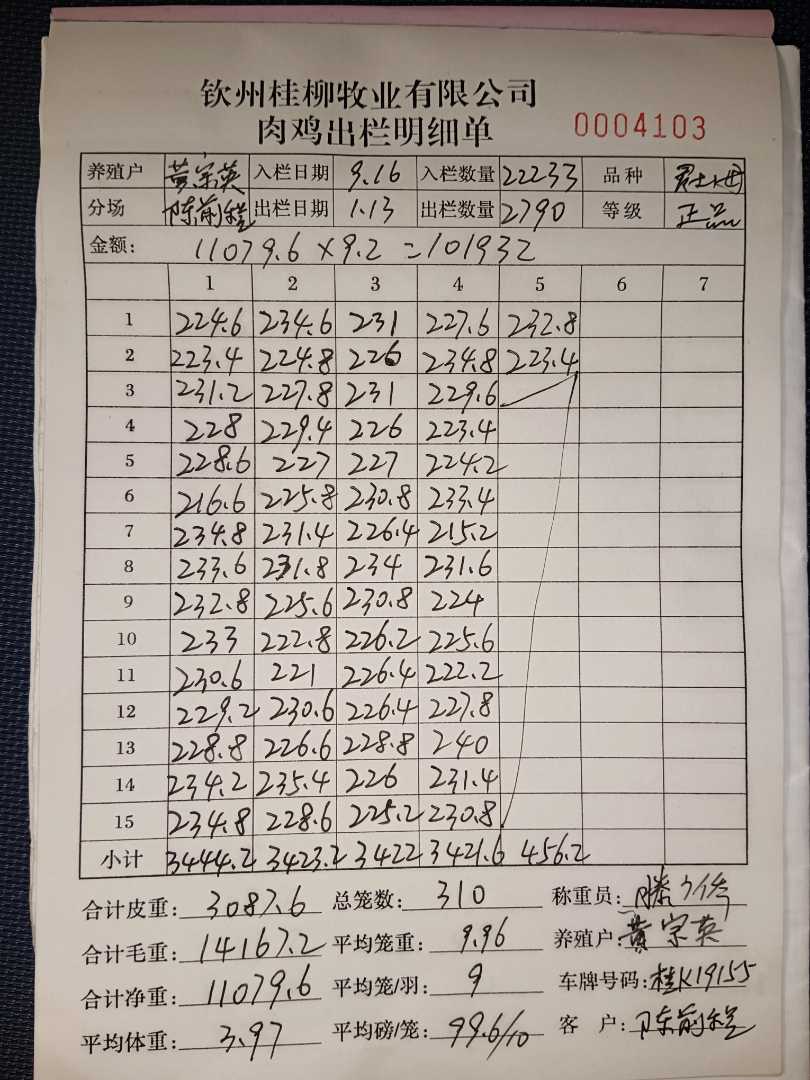 钦州桂柳牧业有限公司
肉鸡出栏明细单 0004103
养殖户 黄宗英 入栏日期 9.16 入栏数量 22233 品种
分场 陈前程 出栏日期 1.13 出栏数量 2790 等级 正品
金额: 11079.6×9.2=101932
1 2 3 4 5 6 7
1 224.6 234.6 231 227.6 232.8
2 223.4 224.8 226 234.8 223.4
3 231.2 227.8 231 229.6
4 228 229.4 226 223.4
5 228.6 227 227 224.2
6 216.6 225.8 230.8 233.4
7 234.8 231.4 226.4 215.2
8 233.6 231.8 234 231.6
9 232.8 225.6 230.8 224
10 233 222.8 226.2 225.6
11 230.6 221 226.4 222.2
12 229.2 230.6 226.4 227.8
13 228.8 226.6 228.8 240
14 234.2 235.4 226 231.4
15 234.8 228.6 225.2 230.8
小计 3444.2 3423.2 3422 3421.6 456.2
合计皮重: 3087.6 总笼数: 310 称重员:
合计毛重: 14167.2 平均笼重: 9.96 养殖户: 黄宗英
合计净重: 11079.6 平均笼/羽: 9 车牌号码: 桂K19155
平均体重: 3.97 平均磅/笼: 99.6/10 客户: 陈前程